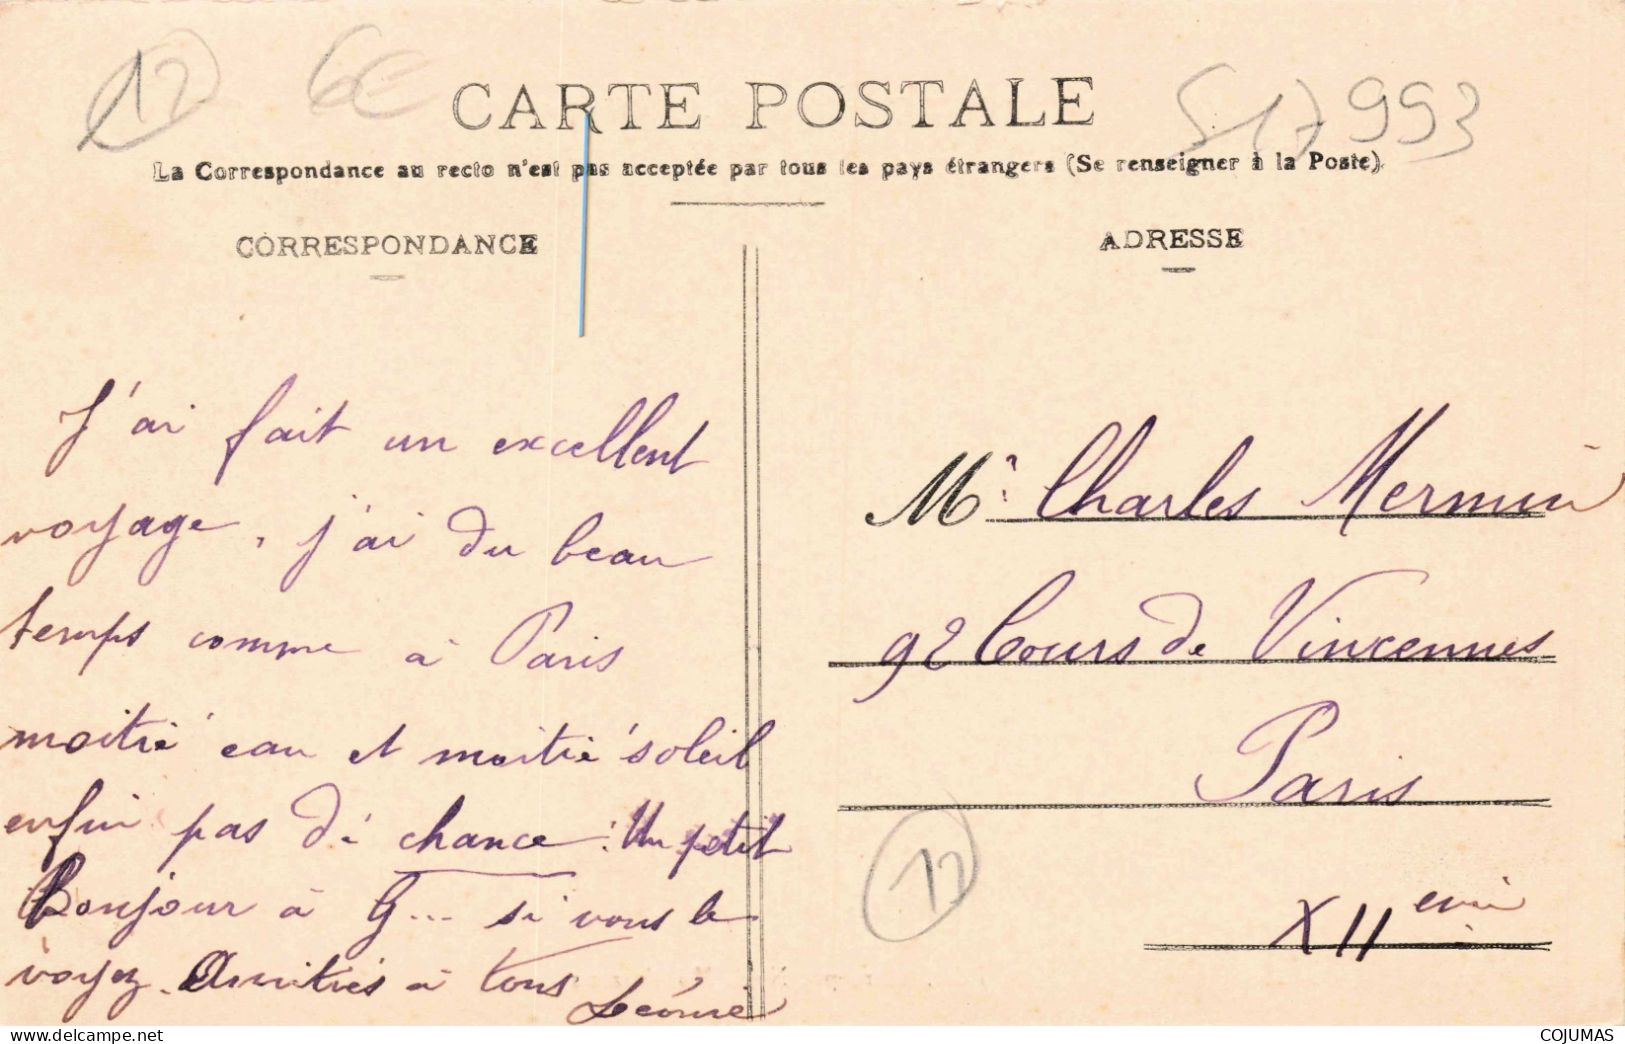 12
6€
517993
CARTE POSTALE
La Correspondance au recto n'est pas acceptée par tous les pays étrangers (Se renseigner à la Poste).
CORRESPONDANCE
J'ai fait un excellent
voyage, j'ai du beau
temps comme à Paris
moitié eau et moitié soleil
enfin pas de chance. Un petit
Bonjour à G... si vous le
voyez. Amitiés à tous
Léonie
ADRESSE
Mr Charles Mermin
92 Cours de Vincennes
Paris
XIIeme
12
COJUMAS